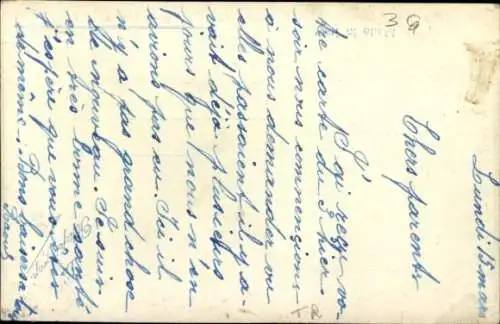 Lundi 15 mars
Chers parents
J'ai reçu vo-
tre carte du 9 hier
soir nous commencions
à nous demander où
elles passaient il y a-
vait déjà plusieurs
jours que nous n'en
avions pas eu. Ici il
n'y a pas grand chose
de nouveau. Je suis
en très bonne santé
j'espère que vous êtes
de même. Bons baisers à tous